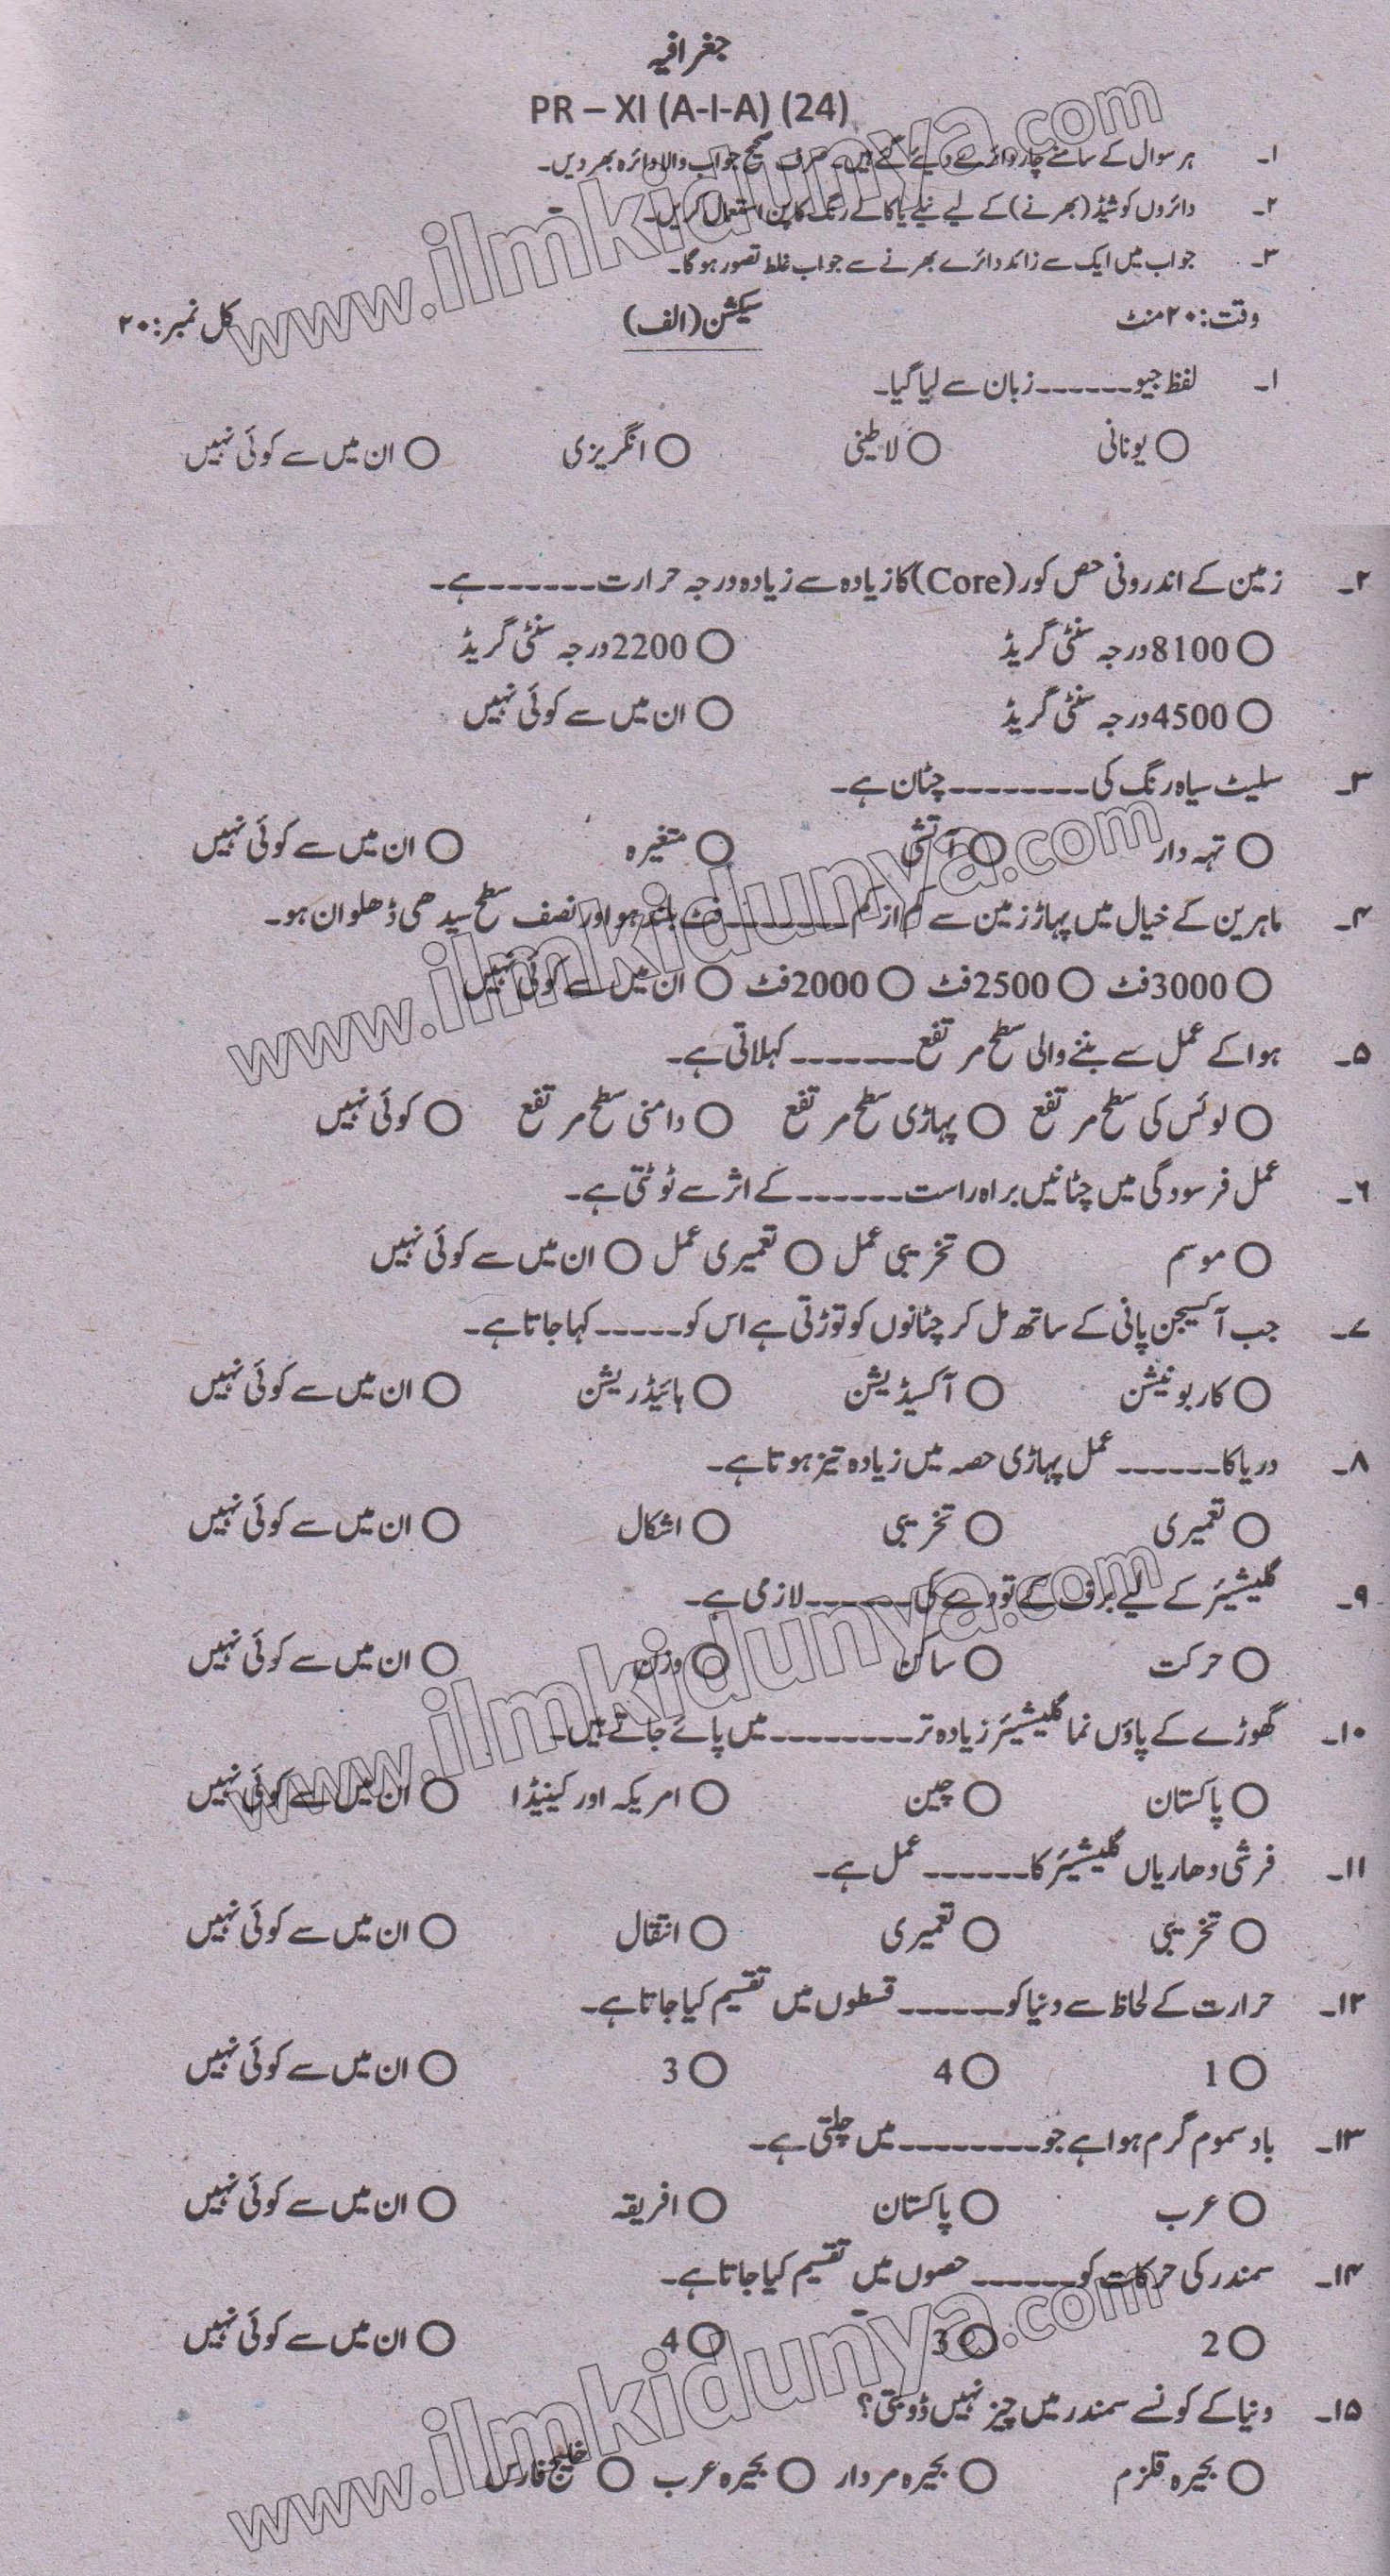 جغرافیہ
PR – XI (A-I-A) (24)
۱۔ ہر سوال کے سامنے چار دائرے دیئے گئے ہیں۔ صرف صحیح جواب والا دائرہ بھر دیں۔
۲۔ دائروں کو شیڈ (بھرنے) کے لیے نیلے یا کالے رنگ کا پن استعمال کریں۔
۳۔ جواب میں ایک سے زائد دائرے بھرنے سے جواب غلط تصور ہوگا۔
وقت: ۲۰ منٹ سیکشن (الف) کل نمبر: ۲۰
۱۔ لفظ جیو ------ زبان سے لیا گیا۔
○ یونانی ○ لاطینی ○ انگریزی ○ ان میں سے کوئی نہیں
۲۔ زمین کے اندرونی حص کور (Core) کا زیادہ سے زیادہ درجہ حرارت ------ ہے۔
○ 8100 درجہ سنٹی گریڈ ○ 2200 درجہ سنٹی گریڈ
○ 4500 درجہ سنٹی گریڈ ○ ان میں سے کوئی نہیں
۳۔ سلیٹ سیاہ رنگ کی -------- چٹان ہے۔
○ تہہ دار ○ آتشی ○ متغیرہ ○ ان میں سے کوئی نہیں
۴۔ ماہرین کے خیال میں پہاڑ زمین سے کم از کم ------- فٹ بلند ہو اور نصف سطح سیدھی ڈھلوان ہو۔
○ 3000 فٹ ○ 2500 فٹ ○ 2000 فٹ ○ ان میں سے کوئی نہیں
۵۔ ہوا کے عمل سے بننے والی سطح مرتفع ------- کہلاتی ہے۔
○ لوئس کی سطح مرتفع ○ پہاڑی سطح مرتفع ○ دامنی سطح مرتفع ○ کوئی نہیں
۶۔ عمل فرسودگی میں چٹانیں براہ راست ------ کے اثر سے ٹوٹتی ہے۔
○ موسم ○ تخریبی عمل ○ تعمیری عمل ○ ان میں سے کوئی نہیں
۷۔ جب آکسیجن پانی کے ساتھ مل کر چٹانوں کو توڑتی ہے اس کو ----- کہا جاتا ہے۔
○ کاربونیشن ○ آکسیڈیشن ○ ہائیڈریشن ○ ان میں سے کوئی نہیں
۸۔ دریا کا ------ عمل پہاڑی حصہ میں زیادہ تیز ہوتا ہے۔
○ تعمیری ○ تخریبی ○ اشکال ○ ان میں سے کوئی نہیں
۹۔ گلیشیئر کے لیے برف کے تودے کی ------ لازمی ہے۔
○ حرکت ○ ساکن ○ وزن ○ ان میں سے کوئی نہیں
۱۰۔ گھوڑے کے پاؤں نما گلیشیئر زیادہ تر -------- میں پائے جاتے ہیں۔
○ پاکستان ○ چین ○ امریکہ اور کینیڈا ○ ان میں سے کوئی نہیں
۱۱۔ فرشی دھاریاں گلیشیئر کا ------ عمل ہے۔
○ تخریبی ○ تعمیری ○ انتقال ○ ان میں سے کوئی نہیں
۱۲۔ حرارت کے لحاظ سے دنیا کو ------ قسطوں میں تقسیم کیا جاتا ہے۔
○ 1 ○ 4 ○ 3 ○ ان میں سے کوئی نہیں
۱۳۔ باد سموم گرم ہوا ہے جو -------- میں چلتی ہے۔
○ عرب ○ پاکستان ○ افریقہ ○ ان میں سے کوئی نہیں
۱۴۔ سمندر کی حرکات کو ------ حصوں میں تقسیم کیا جاتا ہے۔
○ 2 ○ 3 ○ 4 ○ ان میں سے کوئی نہیں
۱۵۔ دنیا کے کونسے سمندر میں چیز نہیں ڈوبتی؟
○ بحیرہ قلزم ○ بحیرہ مردار ○ بحیرہ عرب ○ خلیج فارس
www.ilmkidunya.com
www.ilmkidunya.com
www.ilmkidunya.com
www.ilmkidunya.com